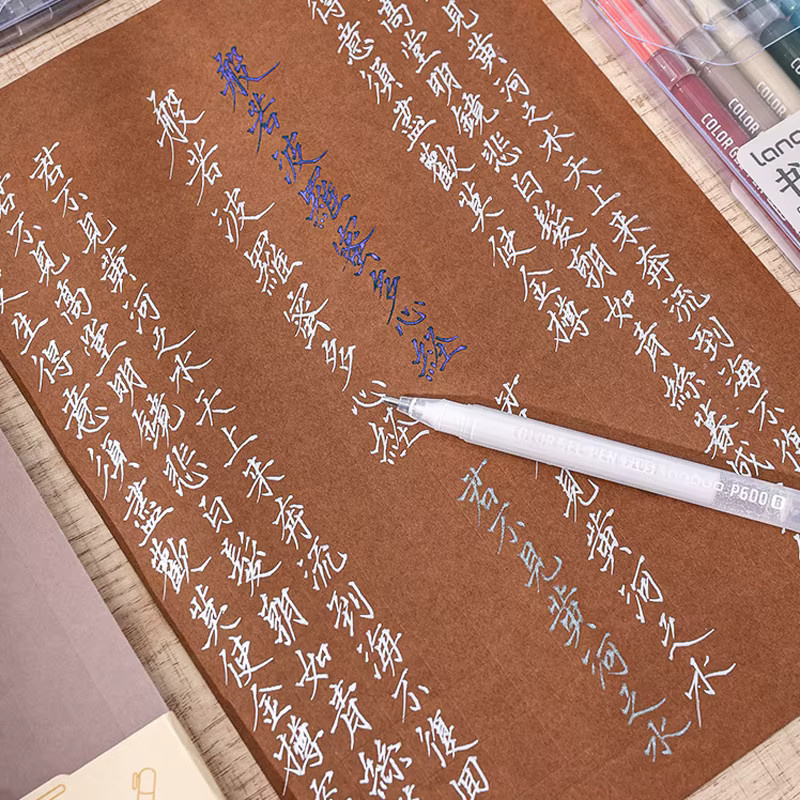 見黃河之水天上來奔流到海不復
高堂明鏡悲白髮朝如青絲暮成
得意須盡歡莫使金樽
般若波羅蜜多心經
般若波羅蜜多心經
見黃河之水
君不見黃河之水
君不見黃河之水天上來奔流到海不復回
君不見高堂明鏡悲白髮朝如青絲
生得意須盡歡莫使金樽
COLOR GEL PEN PLUS
P600 B
COLOR GEL
COLOR
COLOR